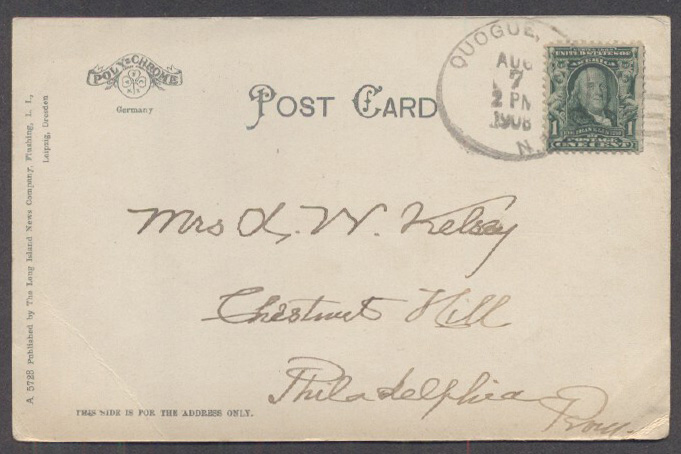 POLY-CHROME
Germany
POST CARD
QUOGUE,
AUG
7
2 PM
1908
N.
UNITED STATES OF
AMERICA
1 1
POSTAGE
ONE CENT
Mrs L. W. Kelsey
Chestnut Hill
Philadelphia
Penn.
THIS SIDE IS FOR THE ADDRESS ONLY.
A 5728 Published by The Long Island News Company, Flushing, L. I.,
Leipzig, Dresden